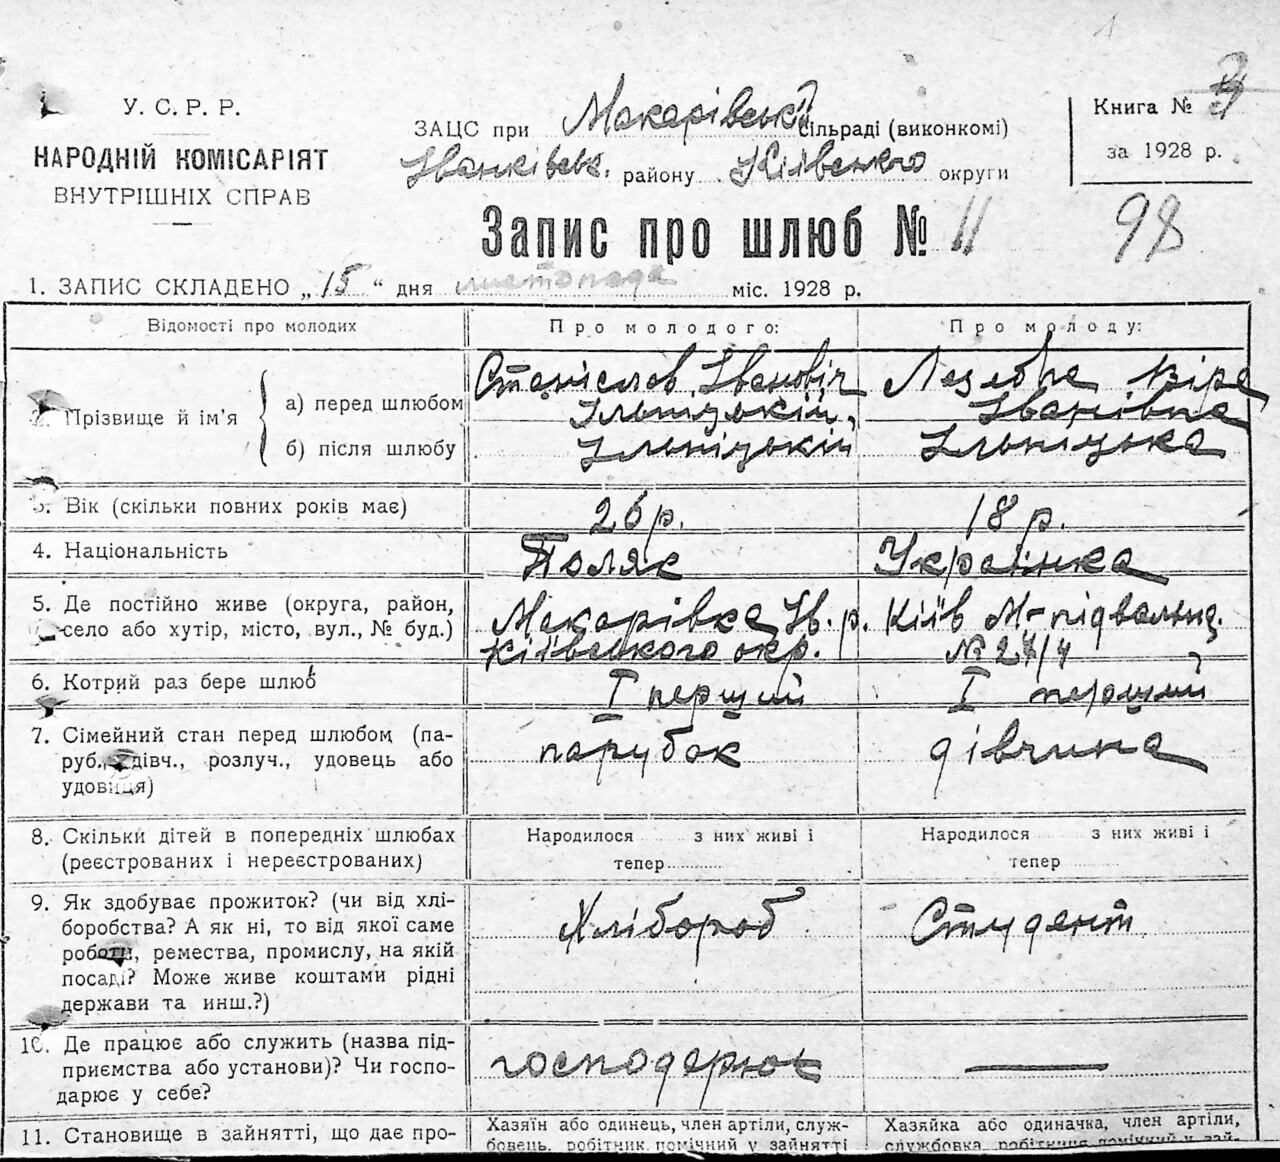 У. С. Р. Р.
НАРОДНІЙ КОМІСАРІЯТ
ВНУТРІШНІХ СПРАВ
ЗАЦС при Макарівській сільраді (виконкомі)
Іванківськ. району Київського округи
Книга №
за 1928 р.
98
Запис про шлюб № 11
1. ЗАПИС СКЛАДЕНО „15“ дня листопада міс. 1928 р.
Відомості про молодих
Про молодого:
Про молоду:
2. Прізвище й ім'я
а) перед шлюбом
б) після шлюбу
Станіслав Івановіч
Ільніцький
Ільніцький
Віра
Іванівна
Ільніцька
3. Вік (скільки повних років має)
26 р.
18 р.
4. Національність
Поляк
Українка
5. Де постійно живе (округа, район,
село або хутір, місто, вул., № буд.)
Макарівка Ів. р.
Київського окр.
Київ М-підвальна
6. Котрий раз бере шлюб
I перший
I перший
7. Сімейний стан перед шлюбом (па-
руб., дівч., розлуч., удовець або
удовиця)
парубок
дівчина
8. Скільки дітей в попередніх шлюбах
(реєстрованих і нереєстрованих)
Народилося з них живі і
тепер
Народилося з них живі і
тепер
9. Як здобуває прожиток? (чи від хлі-
боробства? А як ні, то від якої саме
роботи, ремества, промислу, на якій
посаді? Може живе коштами рідні
держави та инш.?)
Хлібороб
Студент
10. Де працює або служить (назва під-
приємства або установи)? Чи госпо-
дарює у себе?
господарює
11. Становище в зайнятті, що дає про-
Хазяїн або одинець, член артіли, служ-
бовець, робітник, помічний у зайнятті
Хазяйка або одиначка, член артіли,
службовка, робітниця, помічний у зай-